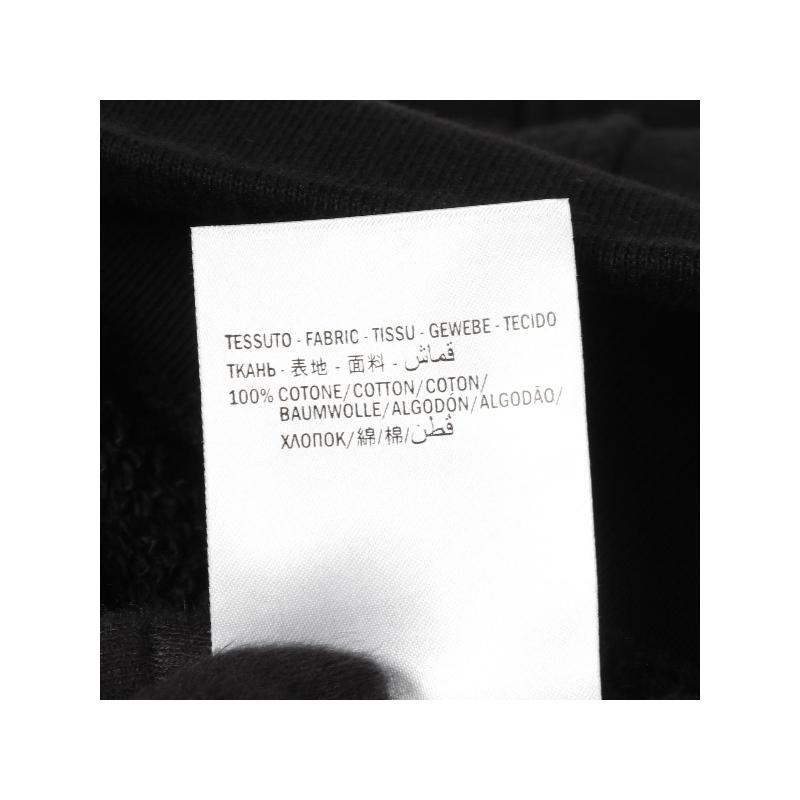 TESSUTO - FABRIC - TISSU - GEWEBE - TECIDO
ТКАНЬ - 表地 - 面料 - قماش
100% COTONE/COTTON/COTON/
BAUMWOLLE/ALGODÓN/ALGODÃO/
ХЛОПОК/綿/棉/قطن